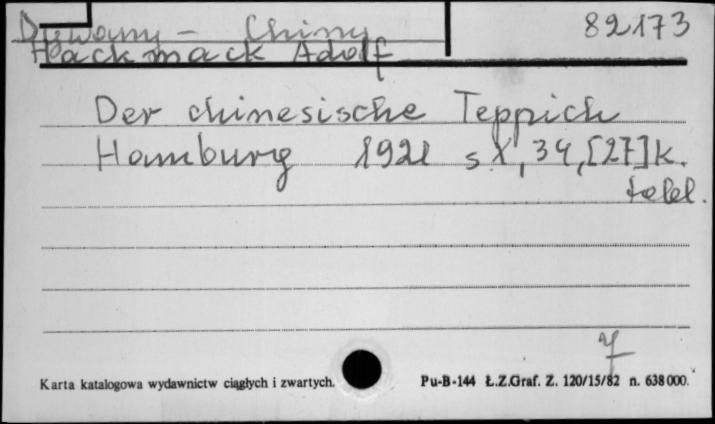 Dywany - Chiny 82173
Hackmack Adolf
Der chinesische Teppich
Hamburg 1921 s.X, 34, [27] k.
tabl.
Karta katalogowa wydawnictw ciągłych i zwartych.
Pu-B-144 Ł.Z.Graf. Z. 120/15/82 n. 638 000.